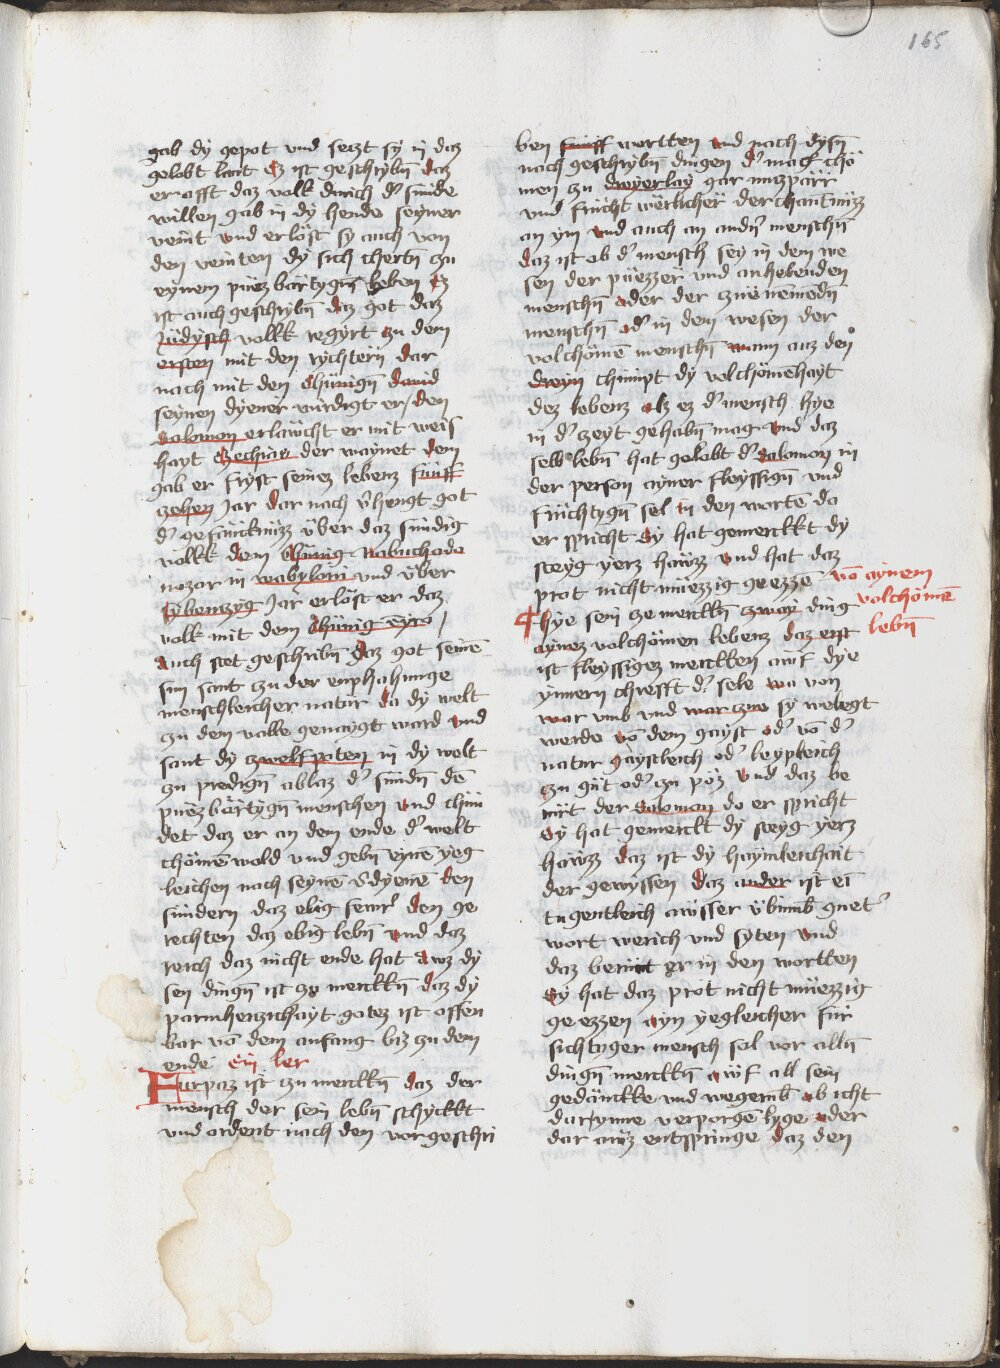 165
gab dÿ gepot vnd seczt sÿ in daz
gelobt lant Ez ist geschrÿbn̄ daz
er offt daz volk durich dˀ sünde
willen gab in dÿ hende seÿner
veint vnd erlöst sÿ auch von
den veinten dÿ sich chertn̄ zu
eÿnem püezbärtÿgn̄ leben Ez
ist auch geschrÿbn̄ daz got daz
Jüdÿsch volkk regÿrt zu dem
ersten mit den rÿchtern dar
nach mit den chünign̄ dauid
seÿnen dÿener wirdigt er den
Salomon erlawcht er mit weis
hayt Ezechias der waÿnet dem
gab er frÿst seinez lebenz fünff
zehen Jar dar nach vˀhengt got
dˀ gefäncknüzz vber daz sündig
volkk dem chünig Nabuchodo
nozor in wabÿloni vnd vber
Sÿbenczÿg Jar erlöst er daz
volk mit dem chünig cÿro
Auch stet geschribn̄ daz got seinē
sun sant zu der enphahunge
menschleicher natur da dÿ welt
zu dem valle genaÿgt ward vnd
sant dÿ zwelfpoten in dÿ welt
zu predign̄ ablaz dˀ sündn̄ dē
püezbärtÿgn̄ menschen vnd chün
det daz er an dem ende dˀ welt
chömē wold vnd gebn̄ eÿnē ÿeg
leichen nach seÿnē vˀdÿenē den
sündern daz ebig fewrˀ den ge
rechten daz ebig lebn̄ vnd daz
reich daz nicht ende hat Awz dÿ
sen dingn̄ ist ze merckn̄ daz dÿ
parmherzichayt gotez ist offen
bar vō dem anfang biz zu dem
ende Ein ler
Furpaz ist zu merckn̄ daz der
mensch der sein lebn̄ schÿckt
vnd ordent nach den vorgeschri
ben fünff wortten vnd nach dÿsn̄
nach geschrÿbn̄ dingen dˀ mag chö
men zu dreÿerlaÿ gar nuzpärr
vnd frücht werlicher derchantnüzz
an ÿm vnd auch an andˀn menschn̄
daz ist ob dˀ mensch seÿ in dem we
sen der püezzer vnd anhebenden
menschn̄ oder der zue nemēdn̄
menschn̄ odˀ in dem wesen der
volchömē menschn̄ wann auz den
dreÿn chümpt dÿ volchömehayt
dez lebenz als ez dˀ mensch hÿe
in dˀ zeÿt gehabn̄ mag vnd daz
selb lebn̄ hat gelobt dˀ Salomon in
der person aÿner fleÿssign̄ vnd
früchtÿgn̄ sel in den wortē do
er spricht Sÿ hat gemerckkt dÿ
steÿg ÿerz hawzz vnd hat daz
prot nicht müezzig geezzē
vō aÿnem
volchömē
lebn̄
Hÿe sein ze merckn̄ zwaÿ ding
aÿnez volchömen lebenz daz erst
ist fleÿssigez merckken auf dÿe
ÿnnern chrefft dˀ sele wa von
war vmb vnd warzue sÿ wewegt
werde vō dem gaÿst odˀ vō dˀ
natur gaÿstleich odˀ leÿpleich
zu gut odˀ zu pöz vnd daz be
nirt der Salomon do er spricht
Sÿ hat gemerckt dÿ steÿg ÿerz
hawzz daz ist dÿ haÿmleichait
der gewÿssen daz ander ist ei
tugentleich awsser vbung guetˀ
wort werich vnd sÿten vnd
daz berürt er in den wortten
Sÿ hat daz prot nicht müezzig
geezzen Aÿn ÿegleicher für
sichtiger mensch sol vor alln̄
dingn̄ merckn̄ awf all sein
gedänckke vnd wegerūg ob icht
darÿnne verporgē lÿge oder
dar auz entspringe daz den